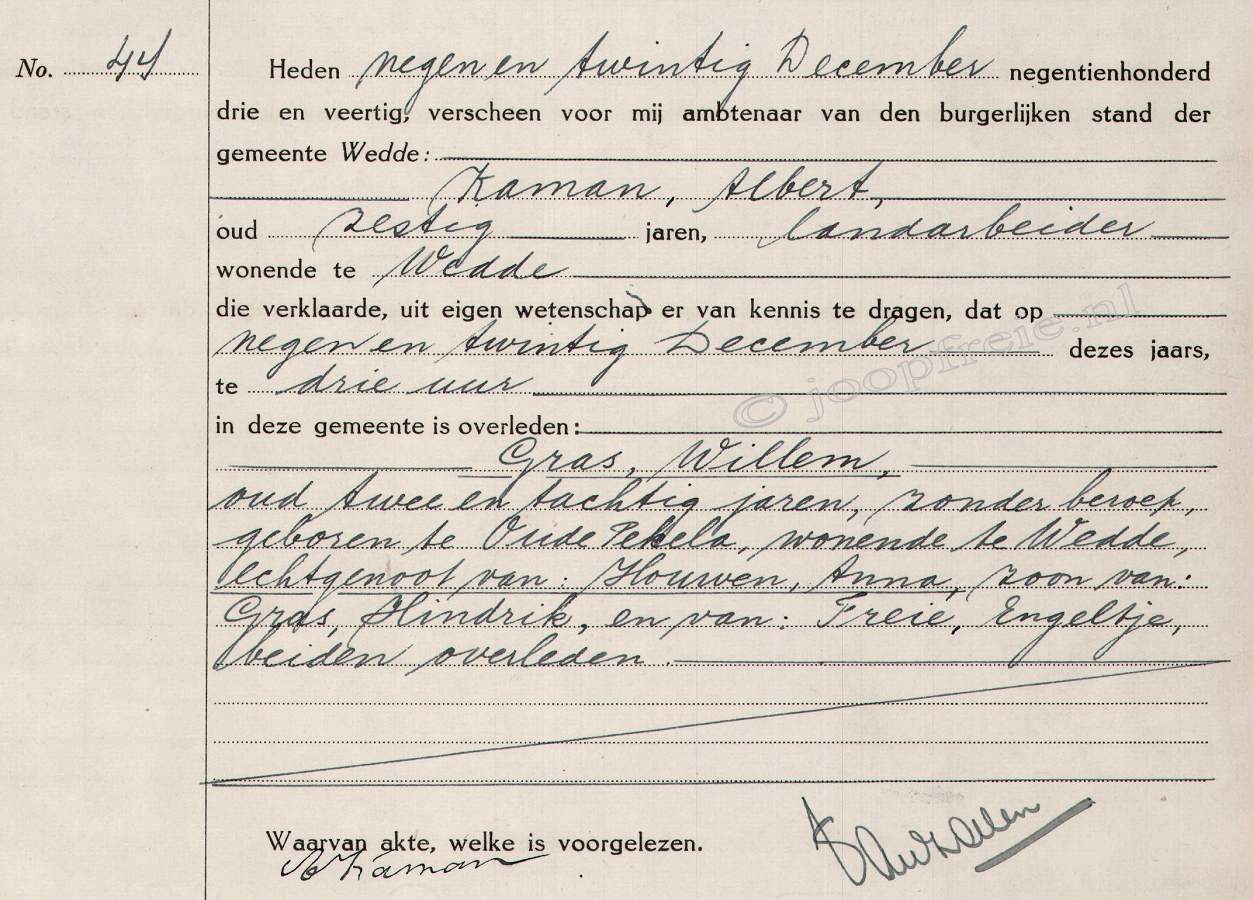 No. 44
Heden negen en twintig December negentienhonderd
drie en veertig, verscheen voor mij ambtenaar van den burgerlijken stand der
gemeente Wedde:
Kaman, Albert,
oud zestig jaren, landarbeider
wonende te Wedde
die verklaarde, uit eigen wetenschap er van kennis te dragen, dat op
negen en twintig December dezes jaars,
te drie uur
in deze gemeente is overleden:
Gras, Willem,
oud twee en tachtig jaren, zonder beroep,
geboren te Oude Pekela, wonende te Wedde,
echtgenoot van: Houwen, Anna, zoon van:
Gras, Hindrik, en van: Freie, Engeltje,
beiden overleden.
© joopfreie.nl
Waarvan akte, welke is voorgelezen.
A Kaman